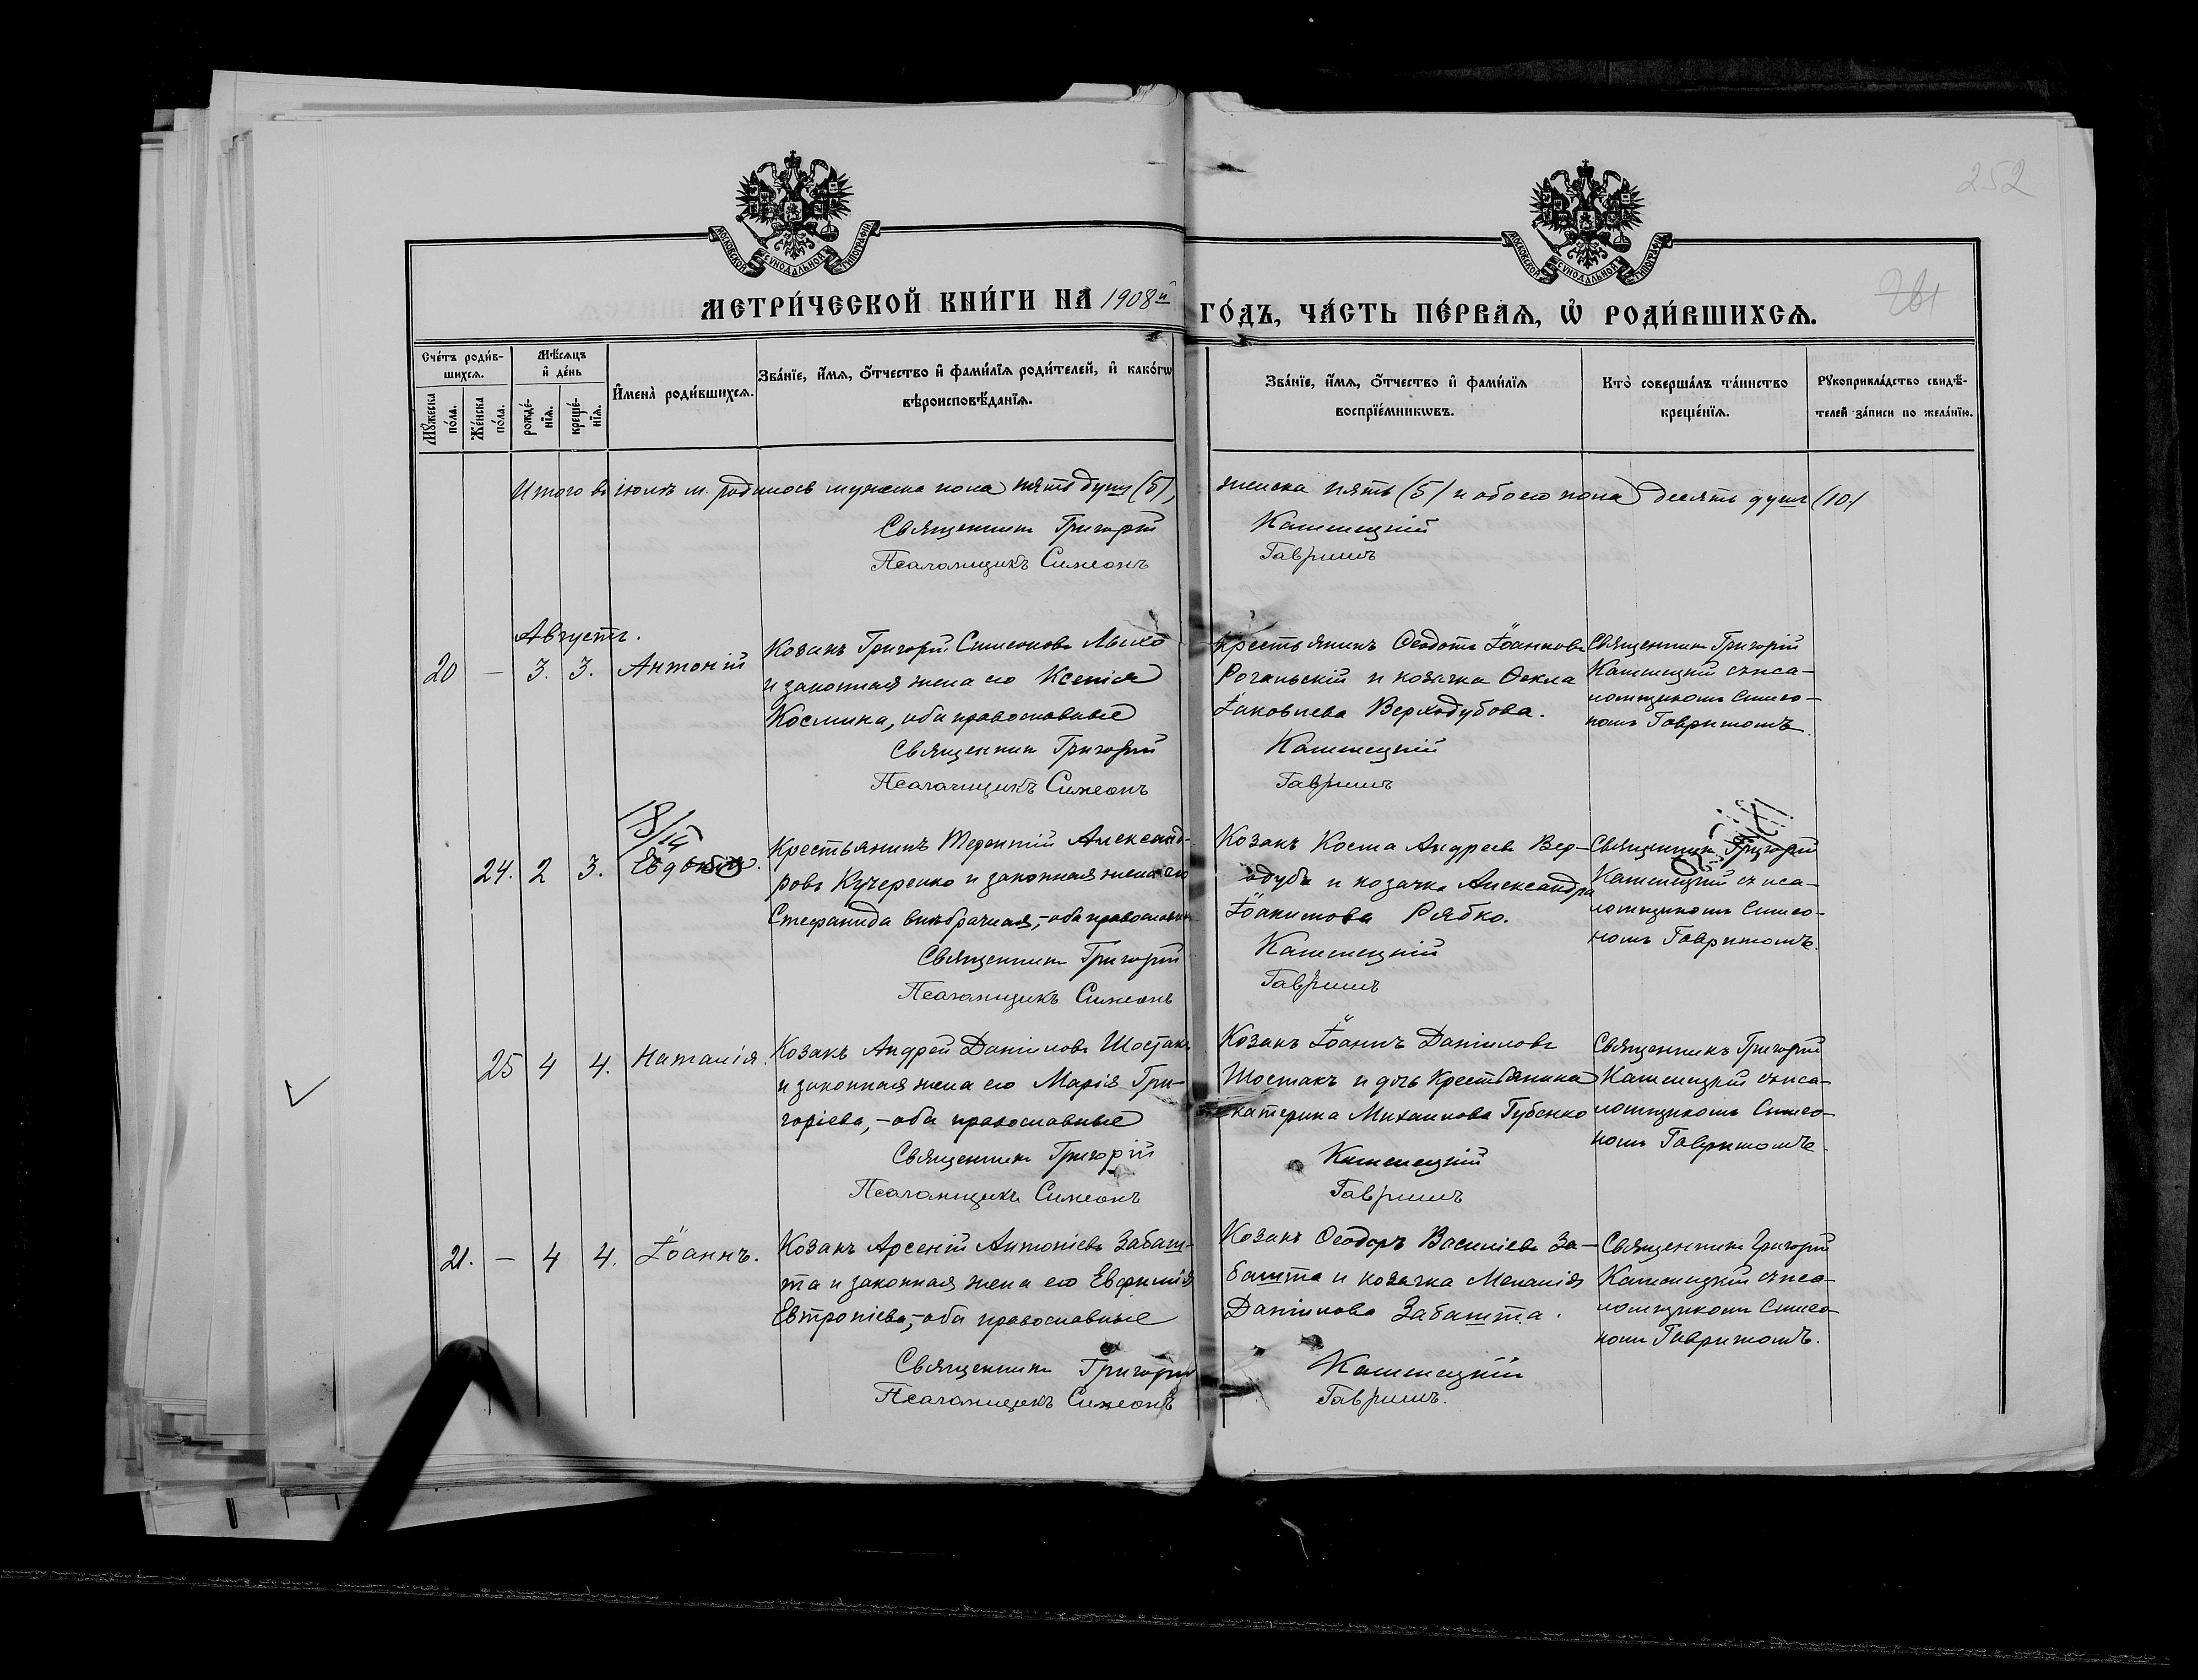 252
261
МОСКОВСКОЙ СУНОДАЛЬНОЙ ТИПОГРАФІИ
МОСКОВСКОЙ СУНОДАЛЬНОЙ ТИПОГРАФІИ
МЕТРИ́ЧЕСКОЙ КНИ́ГИ НА 1908й ГО́ДЪ, ЧА́СТЬ ПЕ́РВАѦ, Ѡ҆ РОДИ́ВШИХСѦ.
Сче́тъ роди́в-
шихсѧ.
Мѣ́сѧцъ
и҆ де́нь
Мꙋ́жеска по́ла.
Же́нска по́ла.
рожде́-
нїѧ.
креще́-
нїѧ.
И҆мена̀ роди́вшихсѧ.
Зва́нїе, и҆́мѧ, ѻ҆́тчество и҆ фами́лїѧ роди́телей, и҆ како́гѡ
вѣроисповѣ́данїѧ.
Зва́нїе, и҆́мѧ, ѻ҆́тчество и҆ фами́лїѧ
воспрїе́мникѡвъ.
Кто̀ соверша́лъ та́инство
креще́нїѧ.
Рꙋкоприкла́дство свидѣ́-
телей за́писи по жела́нїю.
Итого въ іюлѣ м. родилось мужеска пола пять душъ (5), женска пять (5) и обоего пола десять душъ (10)
Священникъ Григорій Каменецкій
Псаломщикъ Симеонъ Гавришъ
Августъ.
20 — 3. 3. Антоній
Козакъ Григорій Симеоновъ
и законная жена его Ксенія
Космина, оба православные
Священникъ Григорій
Псаломщикъ Симеонъ
Крестьянинъ Ѳеодотъ Іоанновъ
Роганьскій и козачка Ѳекла
Іаковлева Верходубова.
Каменецкій
Гавришъ
Священникъ Григорій
Каменецкій съ пса-
ломщикомъ Симео-
номъ Гавришомъ.
24. 2 3. Евдокія.
Крестьянинъ Терентій Александ-
ровъ Кучеренко и законная жена его
Стефанида внѣбрачная,-оба православные
Священникъ Григорій
Псаломщикъ Симеонъ
Козакъ Косма Андреевъ Вер-
одубъ и козачка Александра
Іоакимова Рябко.
Каменецкій
Гавришъ
Священникъ Григорій
Каменецкій съ пса-
ломщикомъ Симео-
номъ Гавришомъ.
25 4 4. Наталія.
Козакъ Андрей Даніиловъ Шостакъ
и законная жена его Марія Гри-
горіева,-оба православные
Священникъ Григорій
Псаломщикъ Симеонъ
Козакъ Іоаннъ Даніиловъ
Шостакъ и дочь крестьянина
Екатерина Михаилова Губенко
Каменецкій
Гавришъ
Священникъ Григорій
Каменецкій съ пса-
ломщикомъ Симео-
номъ Гавришомъ.
21. — 4 4. Іоаннъ.
Козакъ Арсеній Антоніевъ Забаш-
та и законная жена его Евфимія
Евтропіева,-оба православные
Священникъ Григорій
Псаломщикъ Симеонъ
Козакъ Ѳеодоръ Василіевъ За-
башта и козачка Меланія
Даніилова Забашта.
Каменецкій
Гавришъ.
Священникъ Григорій
Каменецкій съ пса-
ломщикомъ Симео-
номъ Гавришомъ.